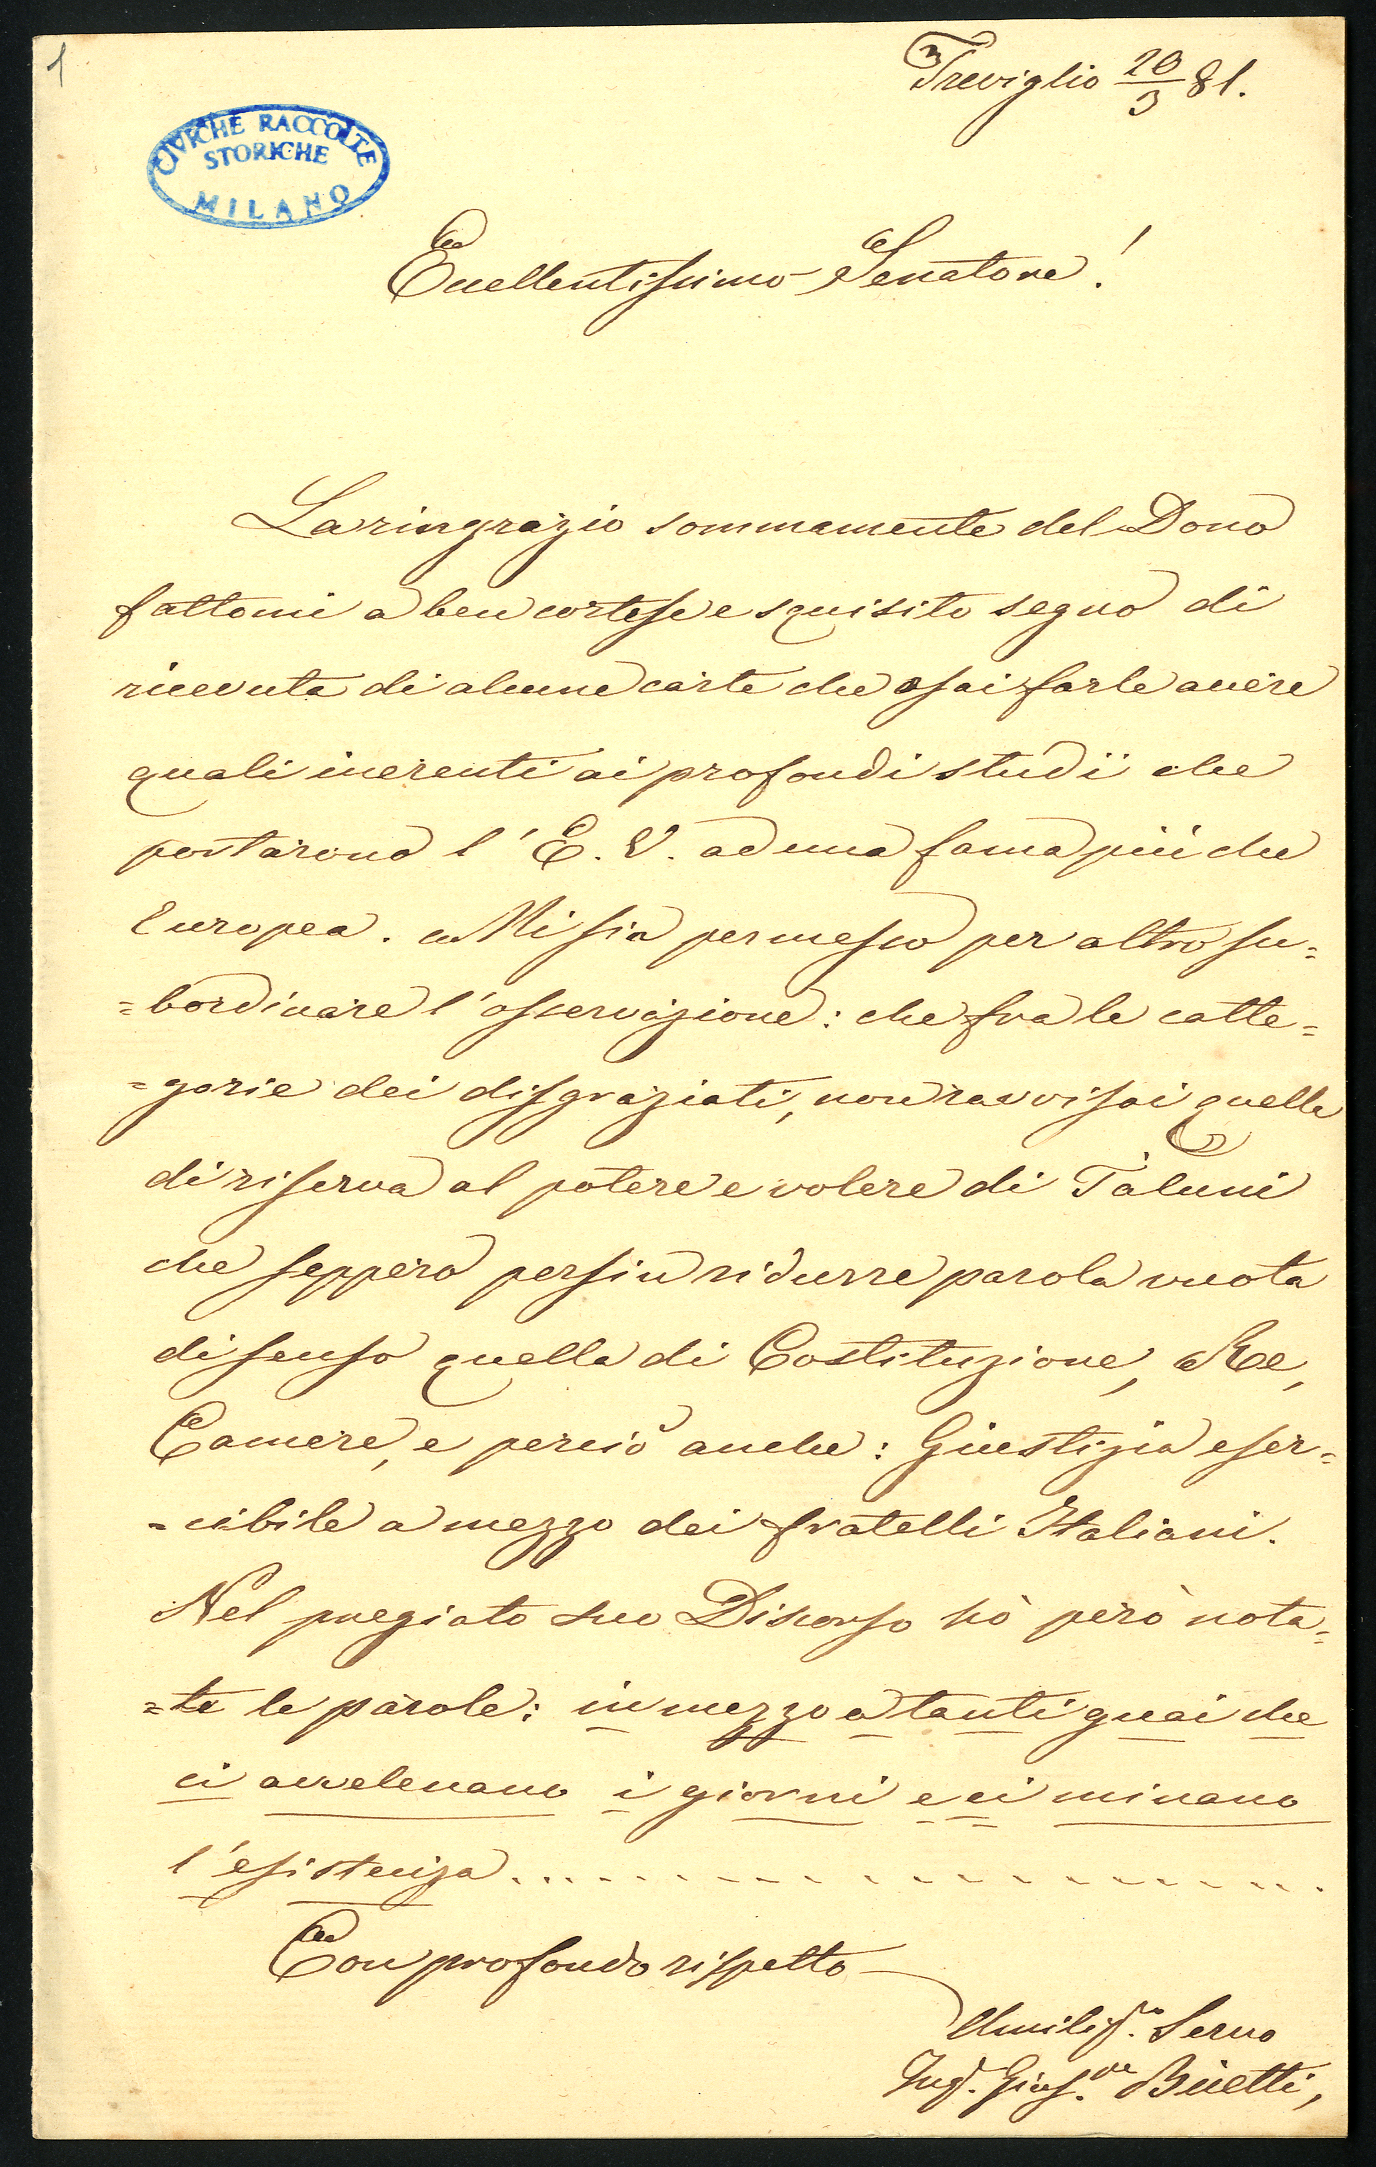 1
Treviglio 20/3 81.
CIVICHE RACCOLTE
STORICHE
MILANO
Eccellentissimo Senatore!
La ringrazio sommamente del Dono
fattomi a ben cortese e squisito segno di
ricevuta di alcune carte che osai farle avere
quali inerenti ai profondi studii che
portarono l'E. V. ad una fama più che
Europea. Mi sia permesso per altro su=
=bordinare l'osservazione: che fra le catte=
=gorie dei disgraziati, non ravvisai quella
di riserva al potere e volere di Taluni
che seppero persin ridurre parola vuota
di senso quella di Costituzione, Re,
Camere, e perciò anche: Giustizia eser=
=cibile a mezzo dei fratelli Italiani.
Nel pregiato suo Discorso hò però nota=
=te le parole: in mezzo a tanti guai che
ci avvelenano i giorni e ci minano
l'esistenza....................
Con profondo rispetto
Umiliss.mo Servo
Ing. Gius.pe Buetti,